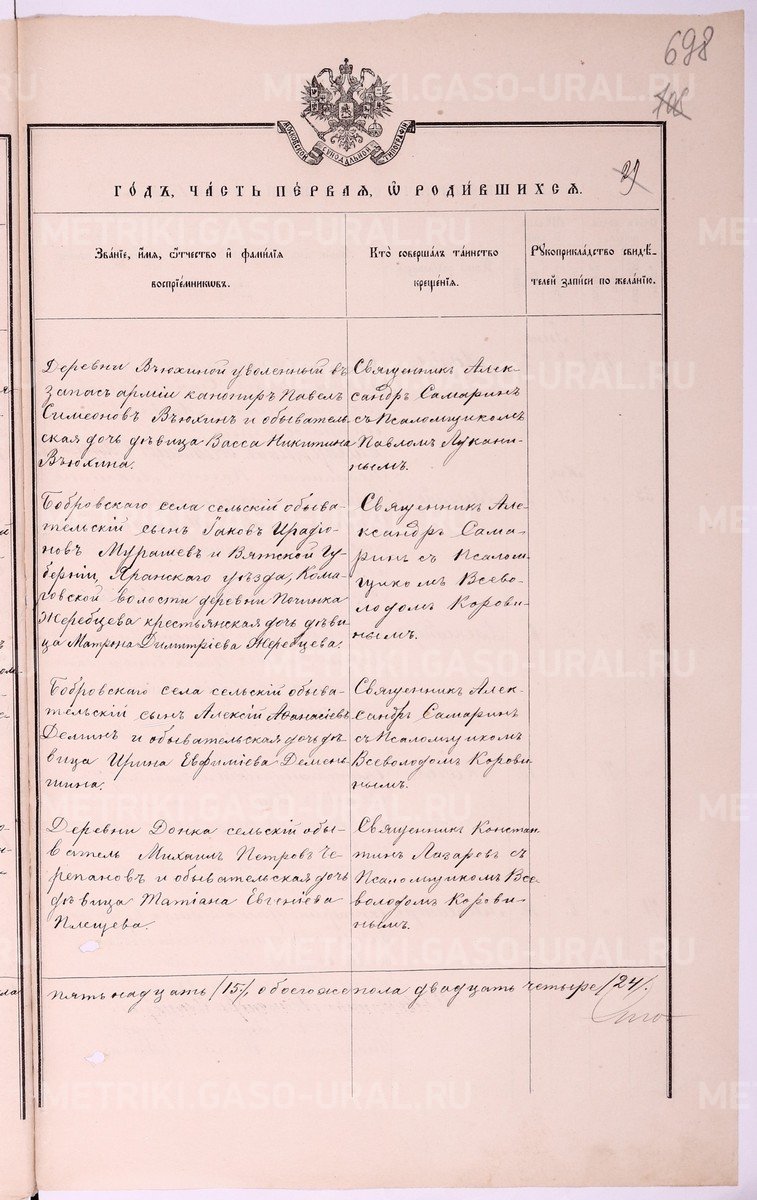 698
708
METRIKI.GASO-URAL.RU
МОСКОВСКОЙ СѴНОДАЛЬНОЙ ТИПОГРАФІИ
29
ГО́ДЪ, ЧА́СТЬ ПЕ́РВАЯ, Ѽ РОДИ́ВШИХСЯ.
METRIKI.GASO-URAL.RU
Зва́нїе, и́мя, ѻ́тчество и҆ фами́лїя
воспрїе́мниковъ.
Кто̀ соверша́лъ та́инство
креще́нїя.
Рꙋкоприкла́дство свидѣ́-
телей за́писи по жела́нїю.
Деревни Вьюхиной уволенный въ
запасъ арміи канониръ Павелъ
Симеоновъ Вьюхинъ и обыватель-
ская дочь дѣвица Васса Никитина
Вьюхина.
Священникъ Алек-
сандръ Самаринъ
съ Псаломщикомъ
Павломъ Лукани-
нымъ.
METRIKI.GASO-URAL.RU
Бобровскаго села сельскій обыва-
тельскій сынъ Іаковъ Иродіо-
новъ Мурашевъ и Вятской Гу-
берніи, Яранскаго уѣзда, Кома-
ровской волости деревни Починка
Жеребцева крестьянская дочь дѣви-
ца Матрона Димитріева Жеребцева.
Священникъ Але-
ксандръ Сама-
ринъ съ Псалом-
щикомъ Всево-
лодомъ Корови-
нымъ.
METRIKI.GASO-URAL.RU
METRIKI.GASO-URAL.RU
Бобровскаго села сельскій обыва-
тельскій сынъ Алексій Аѳанасіевъ
Деминъ и обывательская дочь дѣ-
вица Ирина Евфиміева Демень-
шина.
Священникъ Алек-
сандръ Самаринъ
съ Псаломщикомъ
Всеволодомъ Корови-
нымъ.
METRIKI.GASO-URAL.RU
Деревни Донка сельскій обы-
ватель Михаилъ Петровъ Че-
репановъ и обывательская дочь
дѣвица Татіана Евгеніева
Плещева.
Священникъ Констан-
тинъ Лазаревъ съ
Псаломщикомъ Все-
володомъ Корови-
нымъ.
METRIKI.GASO-URAL.RU
пятьнадцать /15/. обоегоже пола двадцать четыре /24/.
METRIKI.GASO-URAL.RU